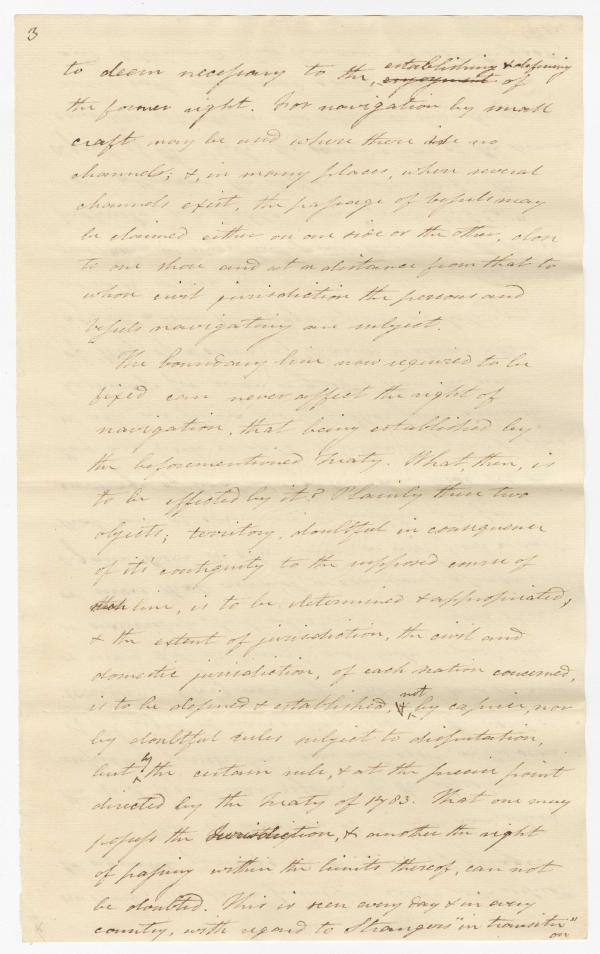 3
to deem necessary to the, establishing & defining enjoyment of
the former right. For navigation by small
craft may be used where there is no
channels; &, in many places, when several
channels exist, the passage of vessels may
be claimed either on one side or the other, close
to one shore and at a distance from that to
whose civil jurisdiction the persons and
vessels navigating are subject.
The boundary line now required to be
fixed can never affect the right of
navigation, that being established by
the beforementioned Treaty. What, then, is
to be effected by it? Plainly these two
objects; territory, doubtful in consequence
of it's contiguity to the supposed course of
line, is to be determined & appropriated,
& the extent of jurisdiction, the civil and
domestic jurisdiction, of each nation concerned,
is to be defined & established, & not by caprice, nor
by doubtful rules subject to disputation,
but by the certain rule, & at the precise point
directed by the Treaty of 1783. That one may
possess the Jurisdiction, & another the right
of passing within the limits thereof, can not
be doubted. This is seen every day & in every
country, with regard to Strangers "in transitu"
on